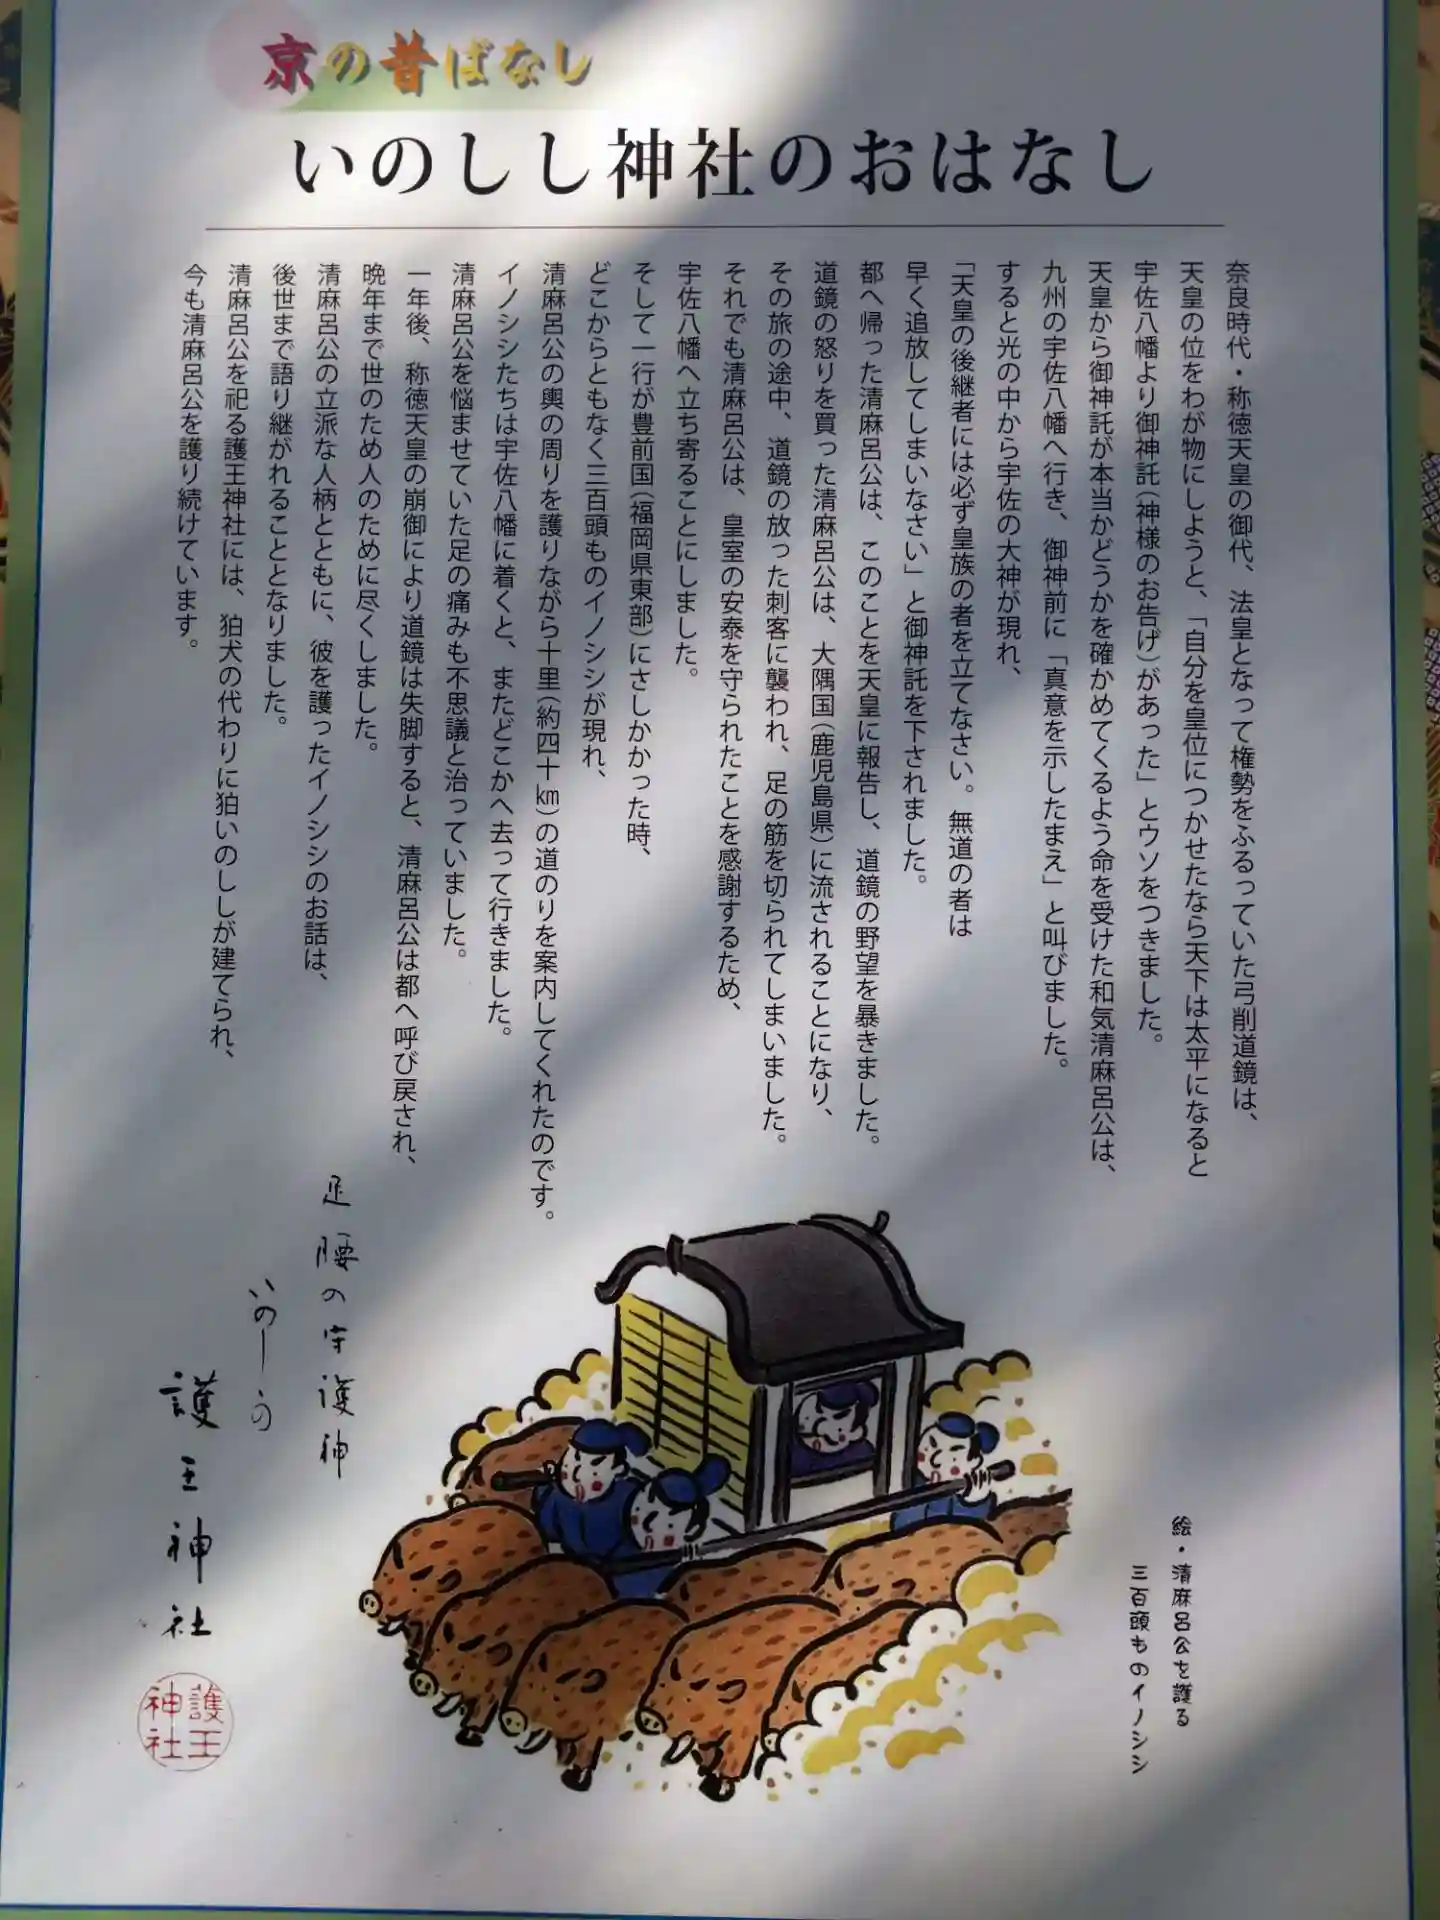 京の昔ばなし
いのしし神社のおはなし
奈良時代・称徳天皇の御代、法皇となって権勢をふるっていた弓削道鏡は、
天皇の位をわが物にしようと、「自分を皇位につかせたなら天下は太平になると
宇佐八幡より御神託(神様のお告げ)があった」とウソをつきました。
天皇から御神託が本当かどうかを確かめてくるよう命を受けた和気清麻呂公は、
九州の宇佐八幡へ行き、御神前に「真意を示したまえ」と叫びました。
すると光の中から宇佐の大神が現れ、
「天皇の後継者には必ず皇族の者を立てなさい。無道の者は
早く追放してしまいなさい」と御神託を下されました。
都へ帰った清麻呂公は、このことを天皇に報告し、道鏡の野望を暴きました。
道鏡の怒りを買った清麻呂公は、大隅国(鹿児島県)に流されることになり、
その旅の途中、道鏡の放った刺客に襲われ、足の筋を切られてしまいました。
それでも清麻呂公は、皇室の安泰を守られたことを感謝するため、
宇佐八幡へ立ち寄ることにしました。
そして一行が豊前国(福岡県東部)にさしかかった時、
どこからともなく三百頭ものイノシシが現れ、
清麻呂公の輿の周りを護りながら十里(約四十㎞)の道のりを案内してくれたのです。
イノシシたちは宇佐八幡に着くと、またどこかへ去って行きました。
清麻呂公を悩ませていた足の痛みも不思議と治っていました。
一年後、称徳天皇の崩御により道鏡は失脚すると、清麻呂公は都へ呼び戻され、
晩年まで世のため人のために尽くしました。
清麻呂公の立派な人柄とともに、彼を護ったイノシシのお話は、
後世まで語り継がれることとなりました。
清麻呂公を祀る護王神社には、狛犬の代わりに狛いのししが建てられ、
今も清麻呂公を護り続けています。
足腰の守護神
いのししの
護王神社
護王
神社
絵・清麻呂公を護る
三百頭ものイノシシ